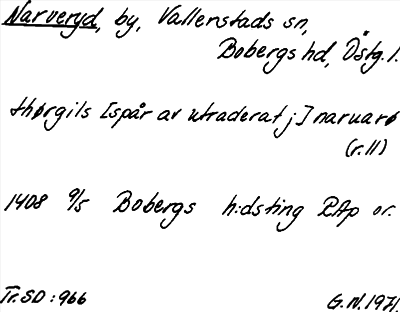 Narveryd, by, Vallerstads sn,
Bobergs hd, Östg. l.
thørgils [spår av utraderat j] naruarø
(r.11)
1408 9/5 Bobergs h:dsting RAp or.
Tr. SD : 966
G.N. 1971.